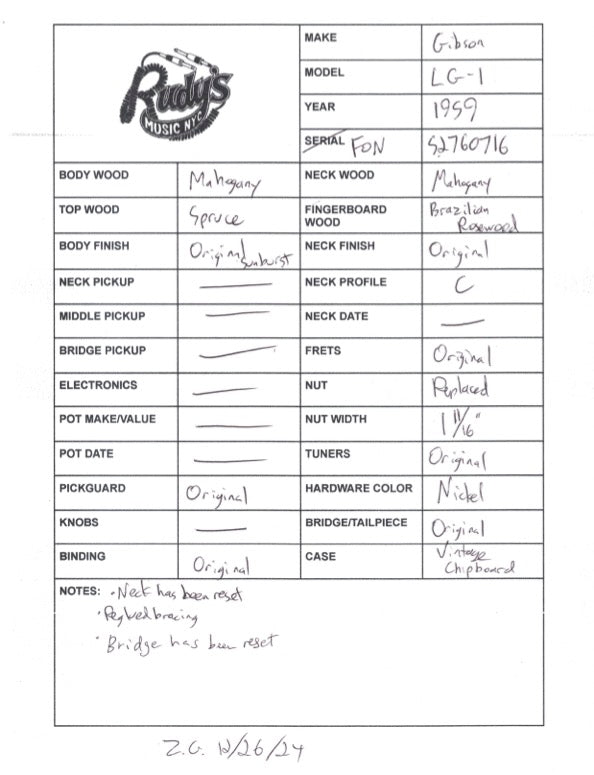 Rudy's
MUSIC NYC
MAKE Gibson
MODEL LG-1
YEAR 1959
SERIAL FON S2760716
BODY WOOD Mahogany NECK WOOD Mahogany
TOP WOOD Spruce FINGERBOARD WOOD Brazilian Rosewood
BODY FINISH Original Sunburst NECK FINISH Original
NECK PICKUP — NECK PROFILE C
MIDDLE PICKUP — NECK DATE —
BRIDGE PICKUP — FRETS Original
ELECTRONICS — NUT Replaced
POT MAKE/VALUE — NUT WIDTH 1 11/16"
POT DATE — TUNERS Original
PICKGUARD Original HARDWARE COLOR Nickel
KNOBS — BRIDGE/TAILPIECE Original
BINDING Original CASE Vintage Chipboard
NOTES: • Neck has been reset
• Reglued bracing
• Bridge has been reset
Z.G. 12/26/24